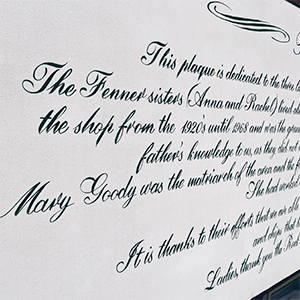 This plaque is dedicated to the three la
The Fenner sisters (Anna and Rachel) lived
the shop from the 1920's until 1968 and was the
father's knowledge to us, as they did not
Mary Goody was the matriarch of the area and the
She had worked
It is thanks to their efforts that we are able
and hope that
Ladies thank you the